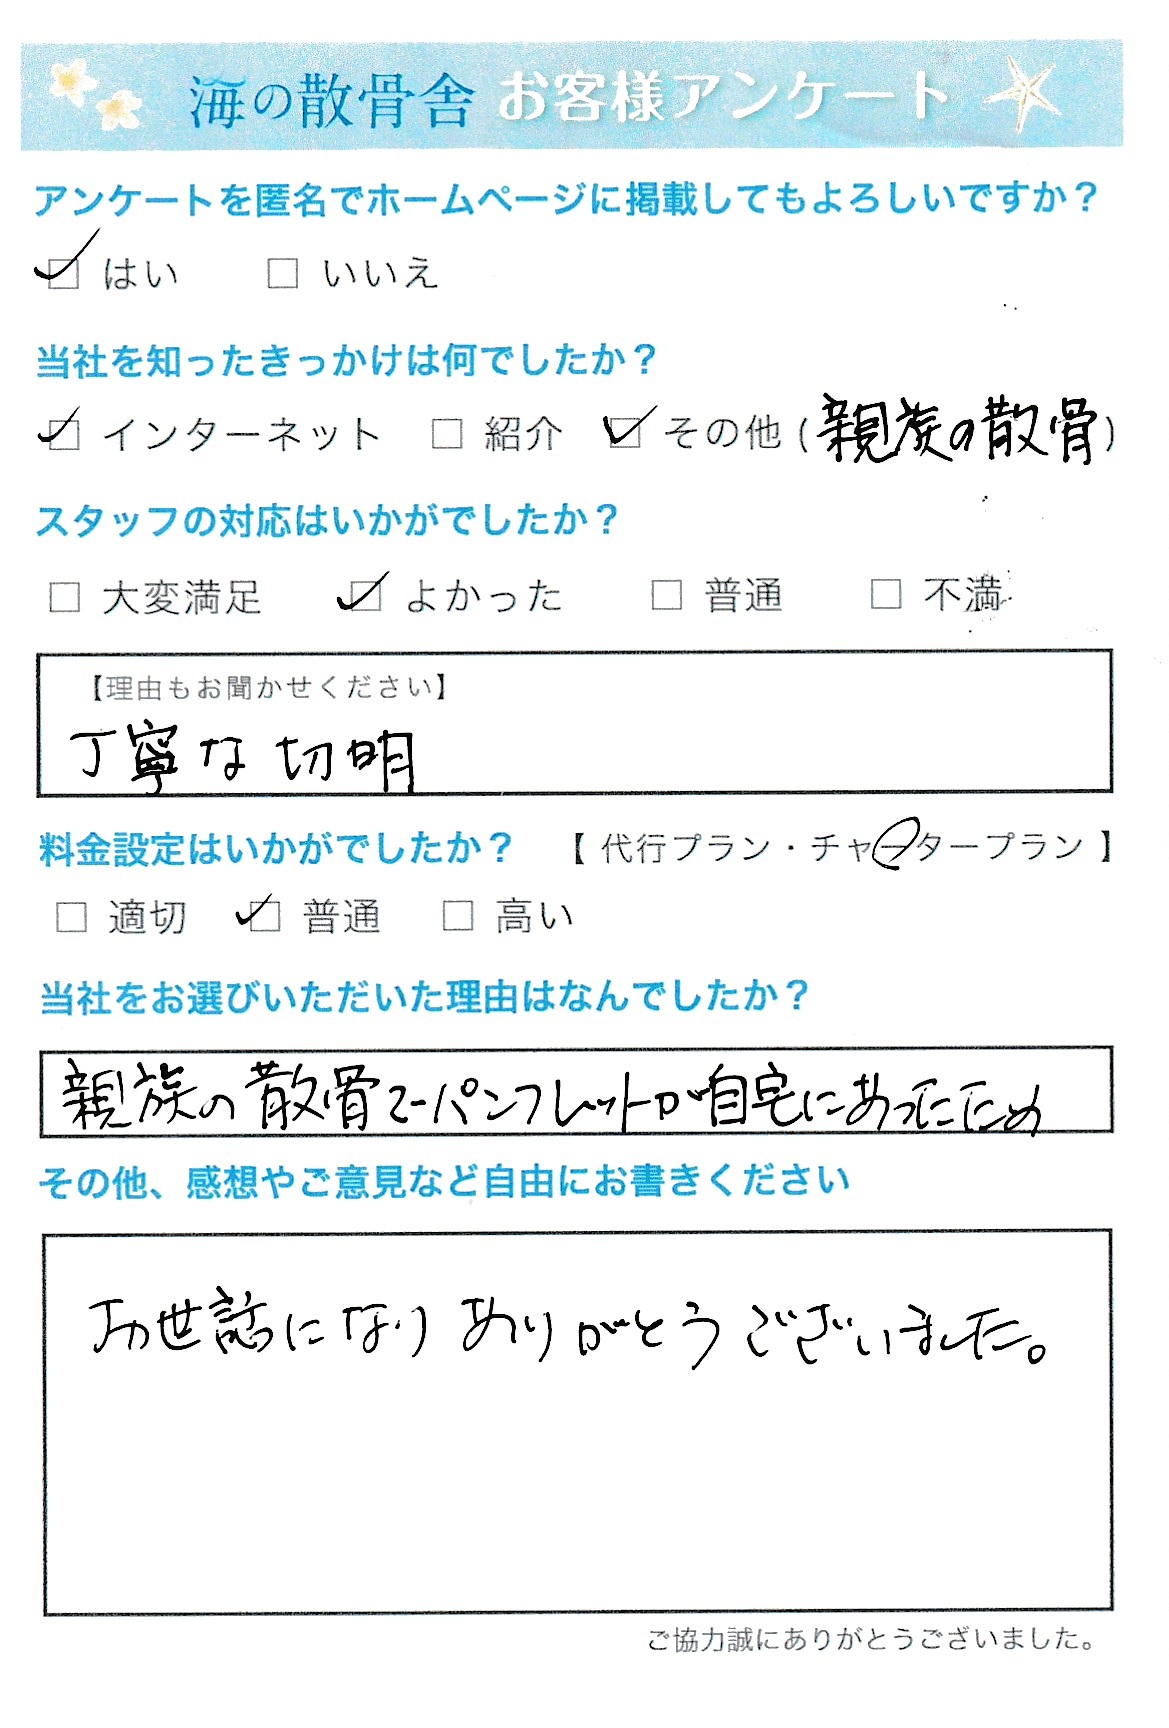 海の散骨舎 お客様アンケート
アンケートを匿名でホームページに掲載してもよろしいですか？
☑ はい □ いいえ
当社を知ったきっかけは何でしたか？
☑ インターネット □ 紹介 ☑ その他 (親族の散骨)
スタッフの対応はいかがでしたか？
□ 大変満足 ☑ よかった □ 普通 □ 不満
【理由もお聞かせください】
丁寧な切明
料金設定はいかがでしたか？ 【 代行プラン・チャータープラン 】
□ 適切 ☑ 普通 □ 高い
当社をお選びいただいた理由はなんでしたか？
親族の散骨でパンフレットが自宅にあったため
その他、感想やご意見など自由にお書きください
お世話になり ありがとうございました。
ご協力誠にありがとうございました。